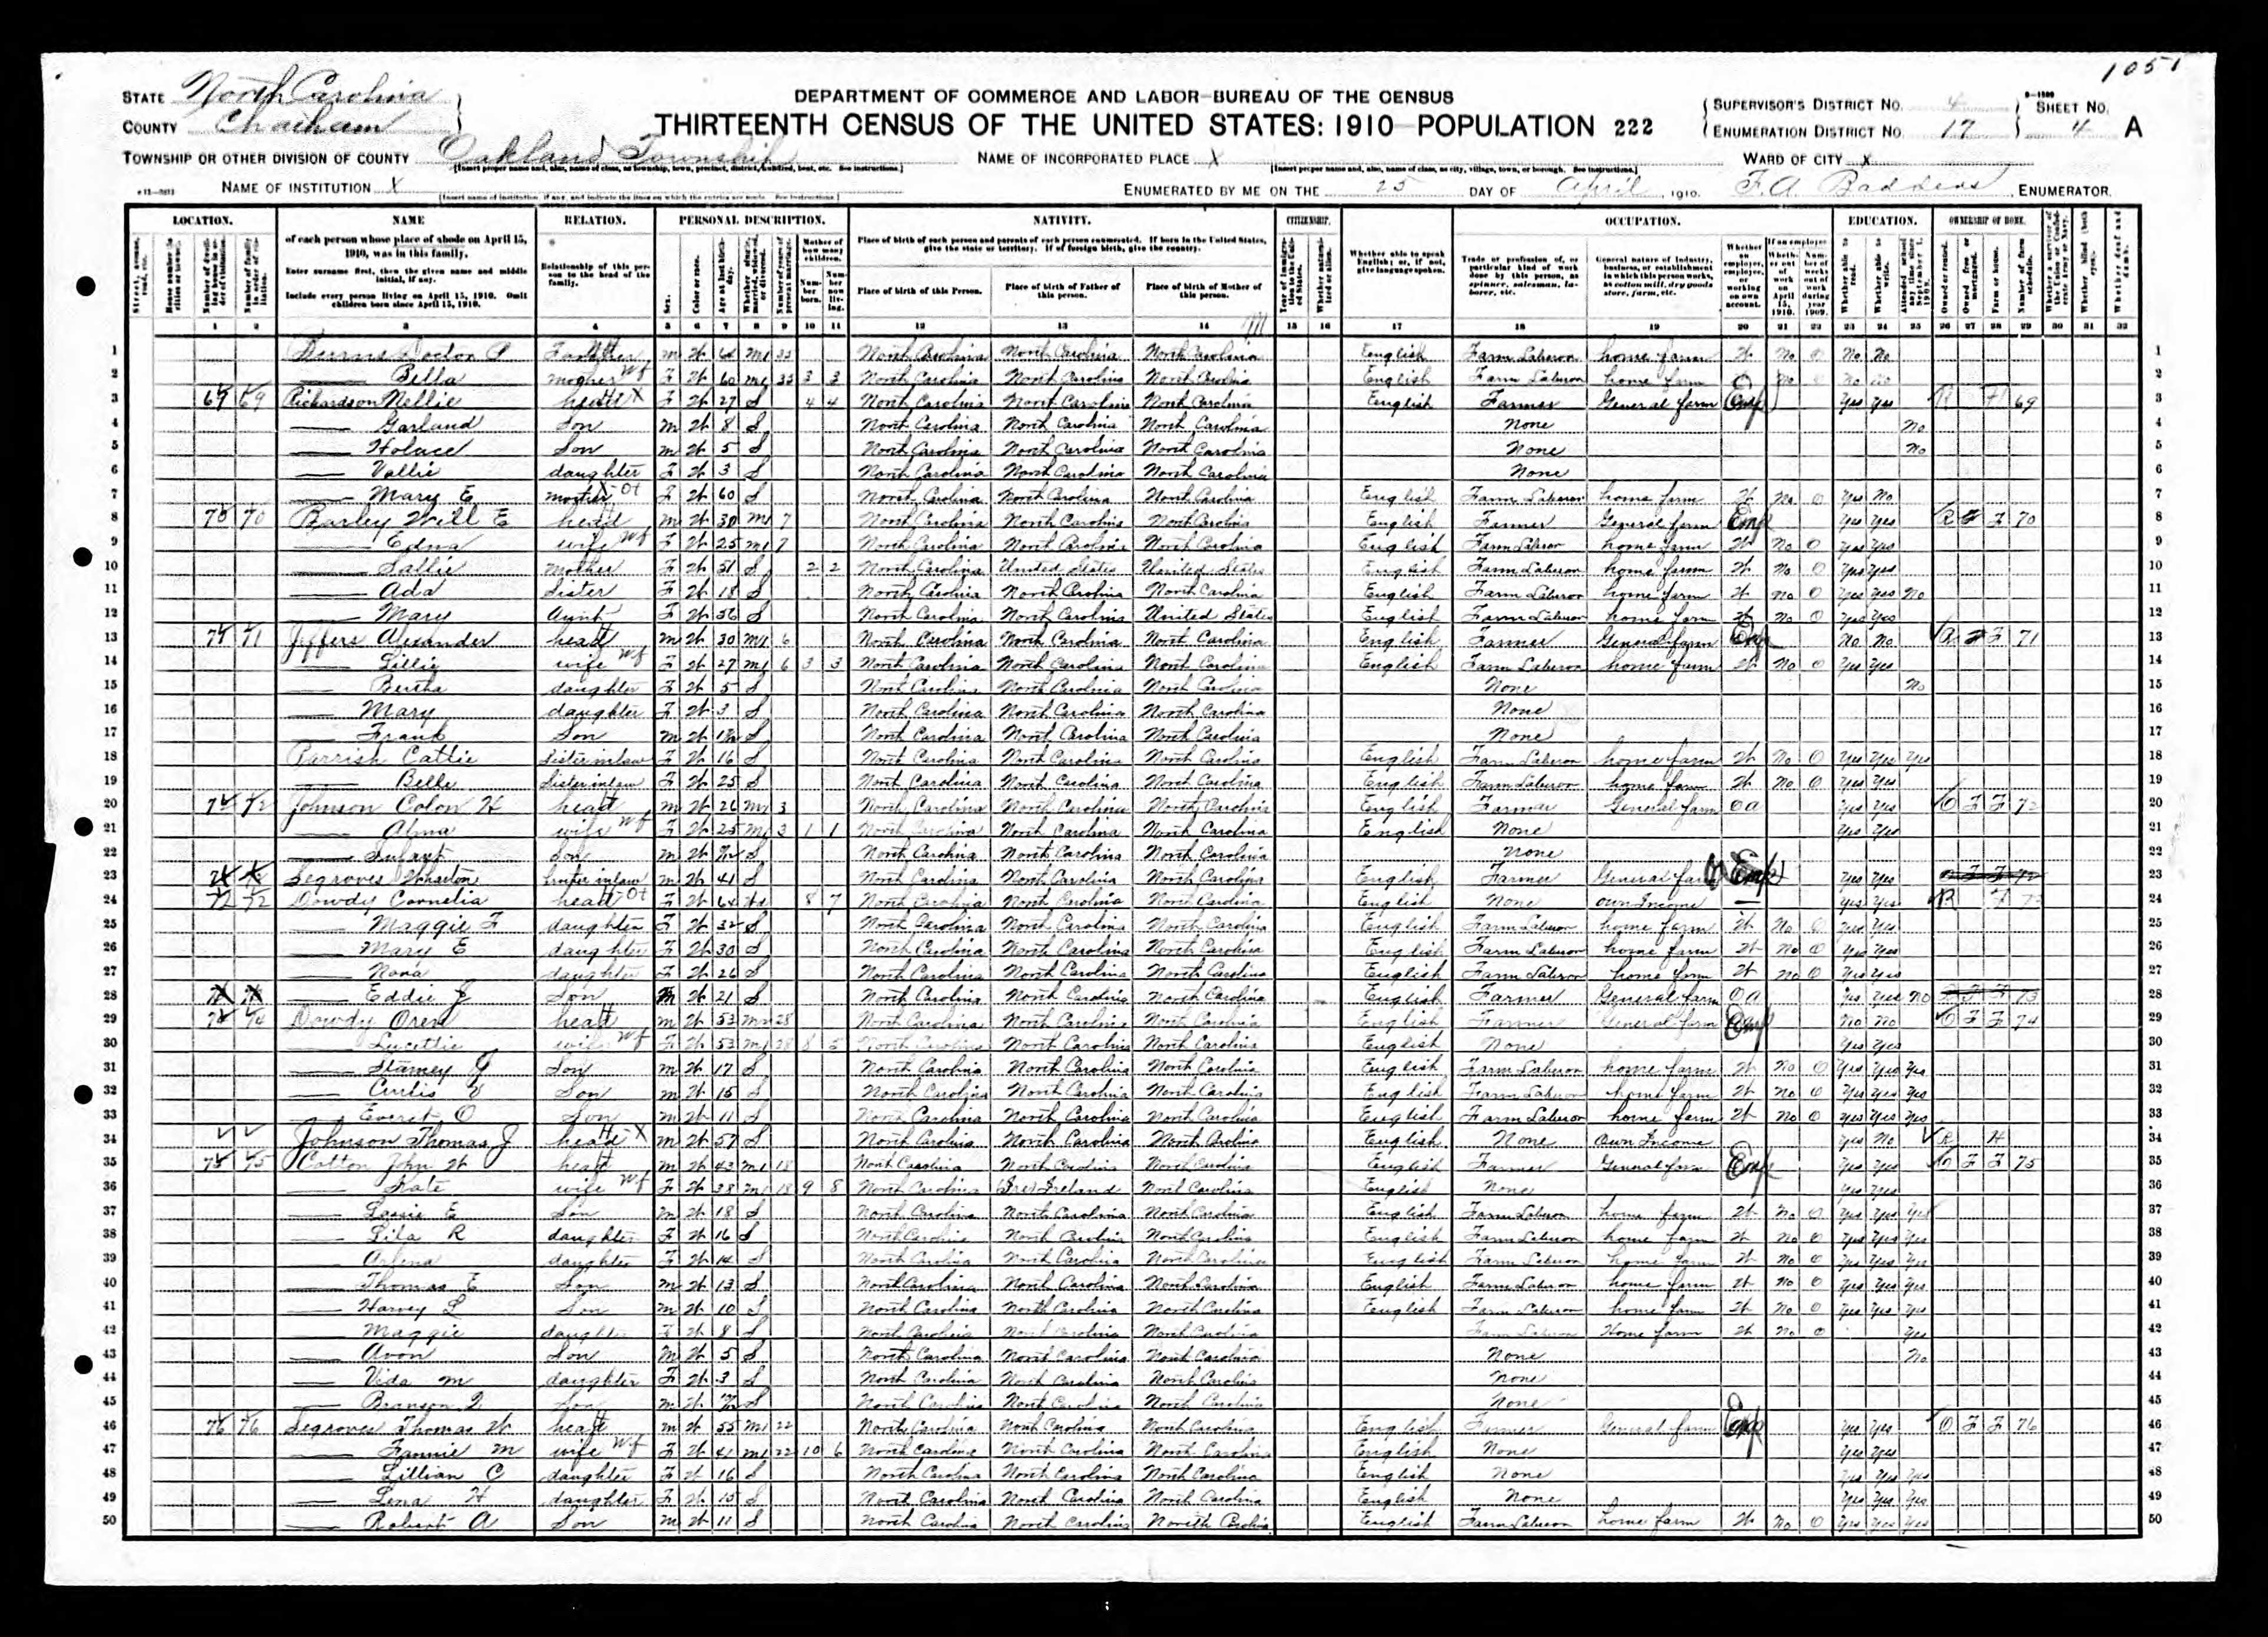 1051
STATE North Carolina
COUNTY Chatham
DEPARTMENT OF COMMERCE AND LABOR—BUREAU OF THE CENSUS
THIRTEENTH CENSUS OF THE UNITED STATES: 1910—POPULATION 222
SUPERVISOR'S DISTRICT NO. 4
ENUMERATION DISTRICT NO. 17
SHEET NO. 4 A
TOWNSHIP OR OTHER DIVISION OF COUNTY Oakland Township
NAME OF INCORPORATED PLACE X
WARD OF CITY X
NAME OF INSTITUTION X
ENUMERATED BY ME ON THE 25 DAY OF April, 1910. F. A. ENUMERATOR.
LOCATION. NAME RELATION. PERSONAL DESCRIPTION. NATIVITY. CITIZENSHIP. OCCUPATION. EDUCATION. OWNERSHIP OF HOME.
of each person whose place of abode on April 15, 1910, was in this family.
Enter surname first, then the given name and middle initial, if any.
Include every person living on April 15, 1910. Omit children born since April 15, 1910.
Relationship of this person to the head of the family.
Place of birth of each person and parents of each person enumerated. If born in the United States, give the state or territory. If of foreign birth, give the country.
Place of birth of this Person. Place of birth of Father of this person. Place of birth of Mother of this person.
Whether able to speak English; or, if not, give language spoken.
1 2 3 4 5 6 7 8 9 10 11 12 13 14 15 16 17 18 19 20 21 22 23 24 25 26 27 28 29 30 31 32
1 Father m W 64 M1 35 North Carolina North Carolina North Carolina English Farm Laborer home farm W No No No
2 Bella mother F W 60 M1 35 3 3 North Carolina North Carolina North Carolina English Farm Laborer home farm
3 69 69 Richardson Nellie head F W 27 S 4 4 North Carolina North Carolina North Carolina English Farmer General farm Emp Yes Yes R F 69
4 Garland Son m W 8 S North Carolina North Carolina North Carolina None No
5 Son m W 5 S North Carolina North Carolina North Carolina None No
6 Vallie daughter F W 3 S North Carolina North Carolina North Carolina None
7 Mary E mother F W 60 S North Carolina North Carolina North Carolina English Farm Laborer home farm W No 0 Yes No
8 70 70 Will E head m W 30 M1 7 North Carolina North Carolina North Carolina English Farmer General farm Emp Yes Yes R F 70
9 Edna wife F W 25 M1 7 North Carolina North Carolina North Carolina English Farm Laborer home farm W No 0 Yes Yes
10 Sallie mother F W 51 S 2 2 North Carolina United States United States English Farm Laborer home farm W No 0 Yes Yes
11 Ada Sister F W 18 S North Carolina North Carolina North Carolina English Farm Laborer home farm W No 0 Yes Yes No
12 Mary Aunt F W 56 S North Carolina North Carolina United States English Farm Laborer home farm W No 0 Yes Yes
13 71 71 Jeffers Alexander head m W 30 M1 6 North Carolina North Carolina North Carolina English Farmer General farm Emp No No R F 71
14 Lillie wife F W 27 M1 6 3 3 North Carolina North Carolina North Carolina English Farm Laborer home farm W No 0 Yes Yes
15 Bertha daughter F W 5 S North Carolina North Carolina North Carolina None No
16 Mary daughter F W 3 S North Carolina North Carolina North Carolina None
17 Frank Son m W S North Carolina North Carolina North Carolina None
18 Parrish Cattie Sister in law F W 16 S North Carolina North Carolina North Carolina English Farm Laborer home farm W No 0 Yes Yes Yes
19 Belle Sister in law F W 25 S North Carolina North Carolina North Carolina English Farm Laborer home farm W No 0 Yes Yes
20 72 72 Johnson Colon H head m W 26 M1 3 North Carolina North Carolina North Carolina English Farmer General farm OA Yes Yes O F F 72
21 Alma wife F W 25 M1 3 1 1 North Carolina North Carolina North Carolina English None Yes Yes
22 Infant Son m W S North Carolina North Carolina North Carolina None
23 Segroves Wharton brother in law m W 41 S North Carolina North Carolina North Carolina English Farmer General farm Emp Yes Yes
24 Dowdy Cornelia head F W 64 Wd 8 7 North Carolina North Carolina North Carolina English None own Income Yes Yes R F 73
25 Maggie F daughter F W 32 S North Carolina North Carolina North Carolina English Farm Laborer home farm W No 0 Yes Yes
26 Mary E daughter F W 30 S North Carolina North Carolina North Carolina English Farm Laborer home farm W No 0 Yes Yes
27 Nora daughter F W 26 S North Carolina North Carolina North Carolina English Farm Laborer home farm W No 0 Yes Yes
28 Eddie J Son m W 21 S North Carolina North Carolina North Carolina English Farmer General farm OA Yes Yes No
29 74 74 Dowdy Oren head m W 53 M1 28 North Carolina North Carolina North Carolina English Farmer General farm Emp No No O F F 74
30 wife F W 53 M1 28 8 5 North Carolina North Carolina North Carolina English None Yes Yes
31 Stamey J Son m W 17 S North Carolina North Carolina North Carolina English Farm Laborer home farm W No 0 Yes Yes Yes
32 Curtis Son m W 15 S North Carolina North Carolina North Carolina English Farm Laborer home farm W No 0 Yes Yes Yes
33 Everet O Son m W 11 S North Carolina North Carolina North Carolina English Farm Laborer home farm W No 0 Yes Yes Yes
34 Johnson Thomas J head m W 57 S North Carolina North Carolina North Carolina English None Own Income Yes No R H
35 75 75 Cotton John W head m W 43 M1 18 North Carolina North Carolina North Carolina English Farmer General farm Emp Yes Yes O F F 75
36 Kate wife F W 38 M1 18 9 8 North Carolina Ireland North Carolina English None Yes Yes
37 Son m W 18 S North Carolina North Carolina North Carolina English Farm Laborer home farm W No 0 Yes Yes Yes
38 Lila R daughter F W 16 S North Carolina North Carolina North Carolina English Farm Laborer home farm W No 0 Yes Yes Yes
39 daughter F W 14 S North Carolina North Carolina North Carolina English Farm Laborer home farm W No 0 Yes Yes Yes
40 Thomas E Son m W 13 S North Carolina North Carolina North Carolina English Farm Laborer home farm W No 0 Yes Yes Yes
41 Harvey L Son m W 10 S North Carolina North Carolina North Carolina English Farm Laborer home farm W No 0 Yes Yes Yes
42 Maggie daughter F W 8 S North Carolina North Carolina North Carolina Farm Laborer Home farm W No 0 Yes
43 Avon Son m W 5 S North Carolina North Carolina North Carolina None No
44 Vida M daughter F W 3 S North Carolina North Carolina North Carolina None
45 Branson Son m W S North Carolina North Carolina North Carolina None
46 76 76 Segroves Thomas W head m W 55 M1 22 North Carolina North Carolina North Carolina English Farmer General farm Emp Yes Yes O F F 76
47 Fannie M wife F W 41 M1 22 10 6 North Carolina North Carolina North Carolina English None Yes Yes
48 Lillian C daughter F W 16 S North Carolina North Carolina North Carolina English None Yes Yes Yes
49 Lena H daughter F W 15 S North Carolina North Carolina North Carolina English None Yes Yes Yes
50 Robert A Son m W 11 S North Carolina North Carolina North Carolina English Farm Laborer home farm W No 0 Yes Yes Yes